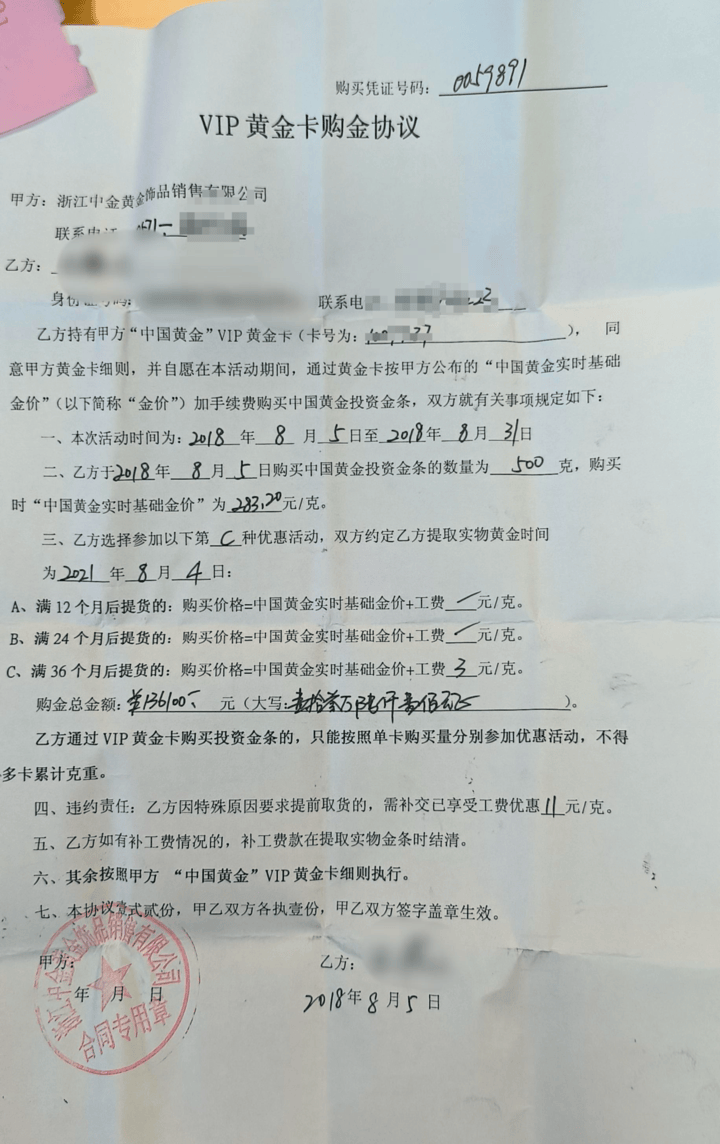 购买凭证号码：0059891
VIP黄金卡购金协议
甲方：浙江中金黄金饰品销售有限公司
联系电
乙方：
联系电
乙方持有甲方“中国黄金”VIP黄金卡（卡号为： ），同
意甲方黄金卡细则，并自愿在本活动期间，通过黄金卡按甲方公布的“中国黄金实时基础
金价”（以下简称“金价”）加手续费购买中国黄金投资金条，双方就有关事项规定如下：
一、本次活动时间为：2018年8月5日至2018年8月31日
二、乙方于2018年8月5日购买中国黄金投资金条的数量为500克，购买
时“中国黄金实时基础金价”为283.20元/克。
三、乙方选择参加以下第C种优惠活动，双方约定乙方提取实物黄金时间
为2021年8月4日：
A、满12个月后提货的：购买价格=中国黄金实时基础金价+工费 元/克。
B、满24个月后提货的：购买价格=中国黄金实时基础金价+工费 元/克。
C、满36个月后提货的：购买价格=中国黄金实时基础金价+工费3元/克。
购金总金额：¥136100 元（大写： ）。
乙方通过VIP黄金卡购买投资金条的，只能按照单卡购买量分别参加优惠活动，不得
多卡累计克重。
四、违约责任：乙方因特殊原因要求提前取货的，需补交已享受工费优惠11元/克。
五、乙方如有补工费情况的，补工费款在提取实物金条时结清。
六、其余按照甲方 “中国黄金”VIP黄金卡细则执行。
七、本协议壹式贰份，甲乙双方各执壹份，甲乙双方签字盖章生效。
甲方： 乙方：
年 月 日 2018年8月5日
浙江中金黄金饰品销售有限公司
合同专用章